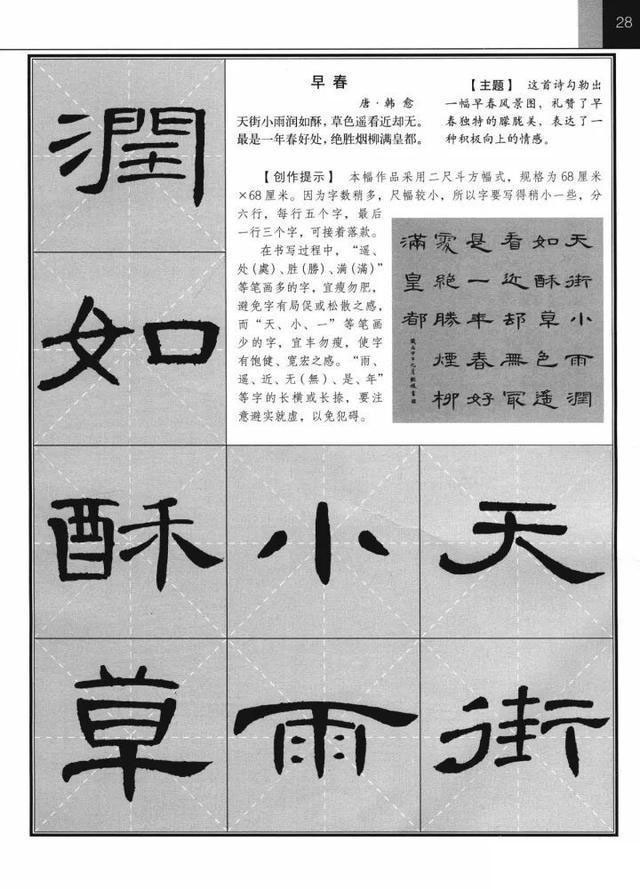 28
早春
唐·韩 愈
天街小雨润如酥，草色遥看近却无。
最是一年春好处，绝胜烟柳满皇都。
【主题】 这首诗勾勒出
一幅早春风景图，礼赞了早
春独特的朦胧美，表达了一
种积极向上的情感。
【创作提示】 本幅作品采用二尺斗方幅式，规格为68厘米
×68厘米。因为字数稍多，尺幅较小，所以字要写得稍小一些，分
六行，每行五个字，最后
一行三个字，可接着落款。
在书写过程中，“遥、
处(處)、胜(勝)、满(滿)”
等笔画多的字，宜瘦勿肥，
避免字有局促或松散之感，
而“天、小、一”等笔画
少的字，宜丰勿瘦，使字
有饱健、宽宏之感。“雨、
遥、近、无(無)、是、年”
等字的长横或长捺，要注
意避实就虚，以免犯碍。
天街小雨潤
如酥草色遥
看近却無冣
是一年春好
處絶勝煙柳
滿皇都
天街
小雨
潤如酥草